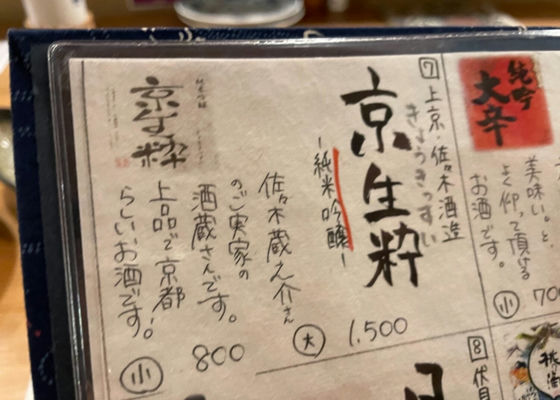 純吟
大辛
美味いと
よく仰って頂ける
お酒です。
小
700
7
上京・佐々木酒造
きょうきっすい
京生粋
-純米吟醸-
佐々木蔵之介さん
のご実家の
酒蔵さんです。
上品で京都
らしいお酒です!
大
1,500
小
800
京生粋
8
代目